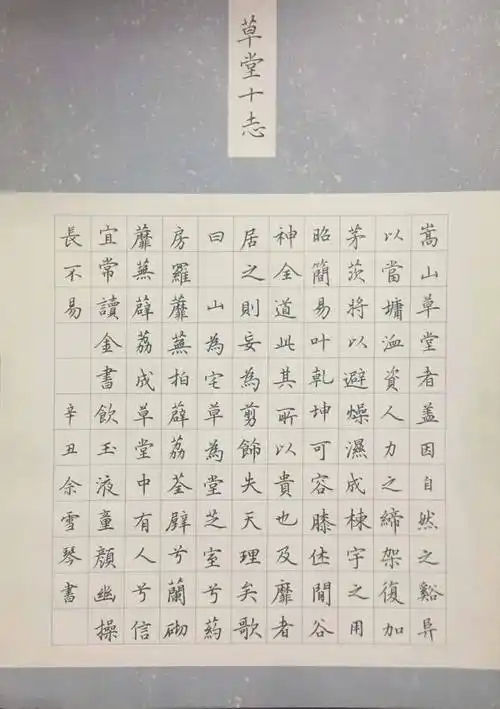 草堂十志
嵩山草堂者盖因自然之谿
以當墉洫資人力之締架復加
茅茨將以避燥濕成棟宇之用
昭簡易叶乾坤可容膝休間谷
神全道此其所以貴也及靡者
居之則妄為剪飾失天理矣歌
曰 山為宅草為堂芝室兮葯
房羅蘼蕪拍薜荔荃壁兮蘭砌
蘼蕪薜荔成草堂中有人兮信
宜常讀金書飲玉液童顏幽操
長不易 辛丑余雪琴書